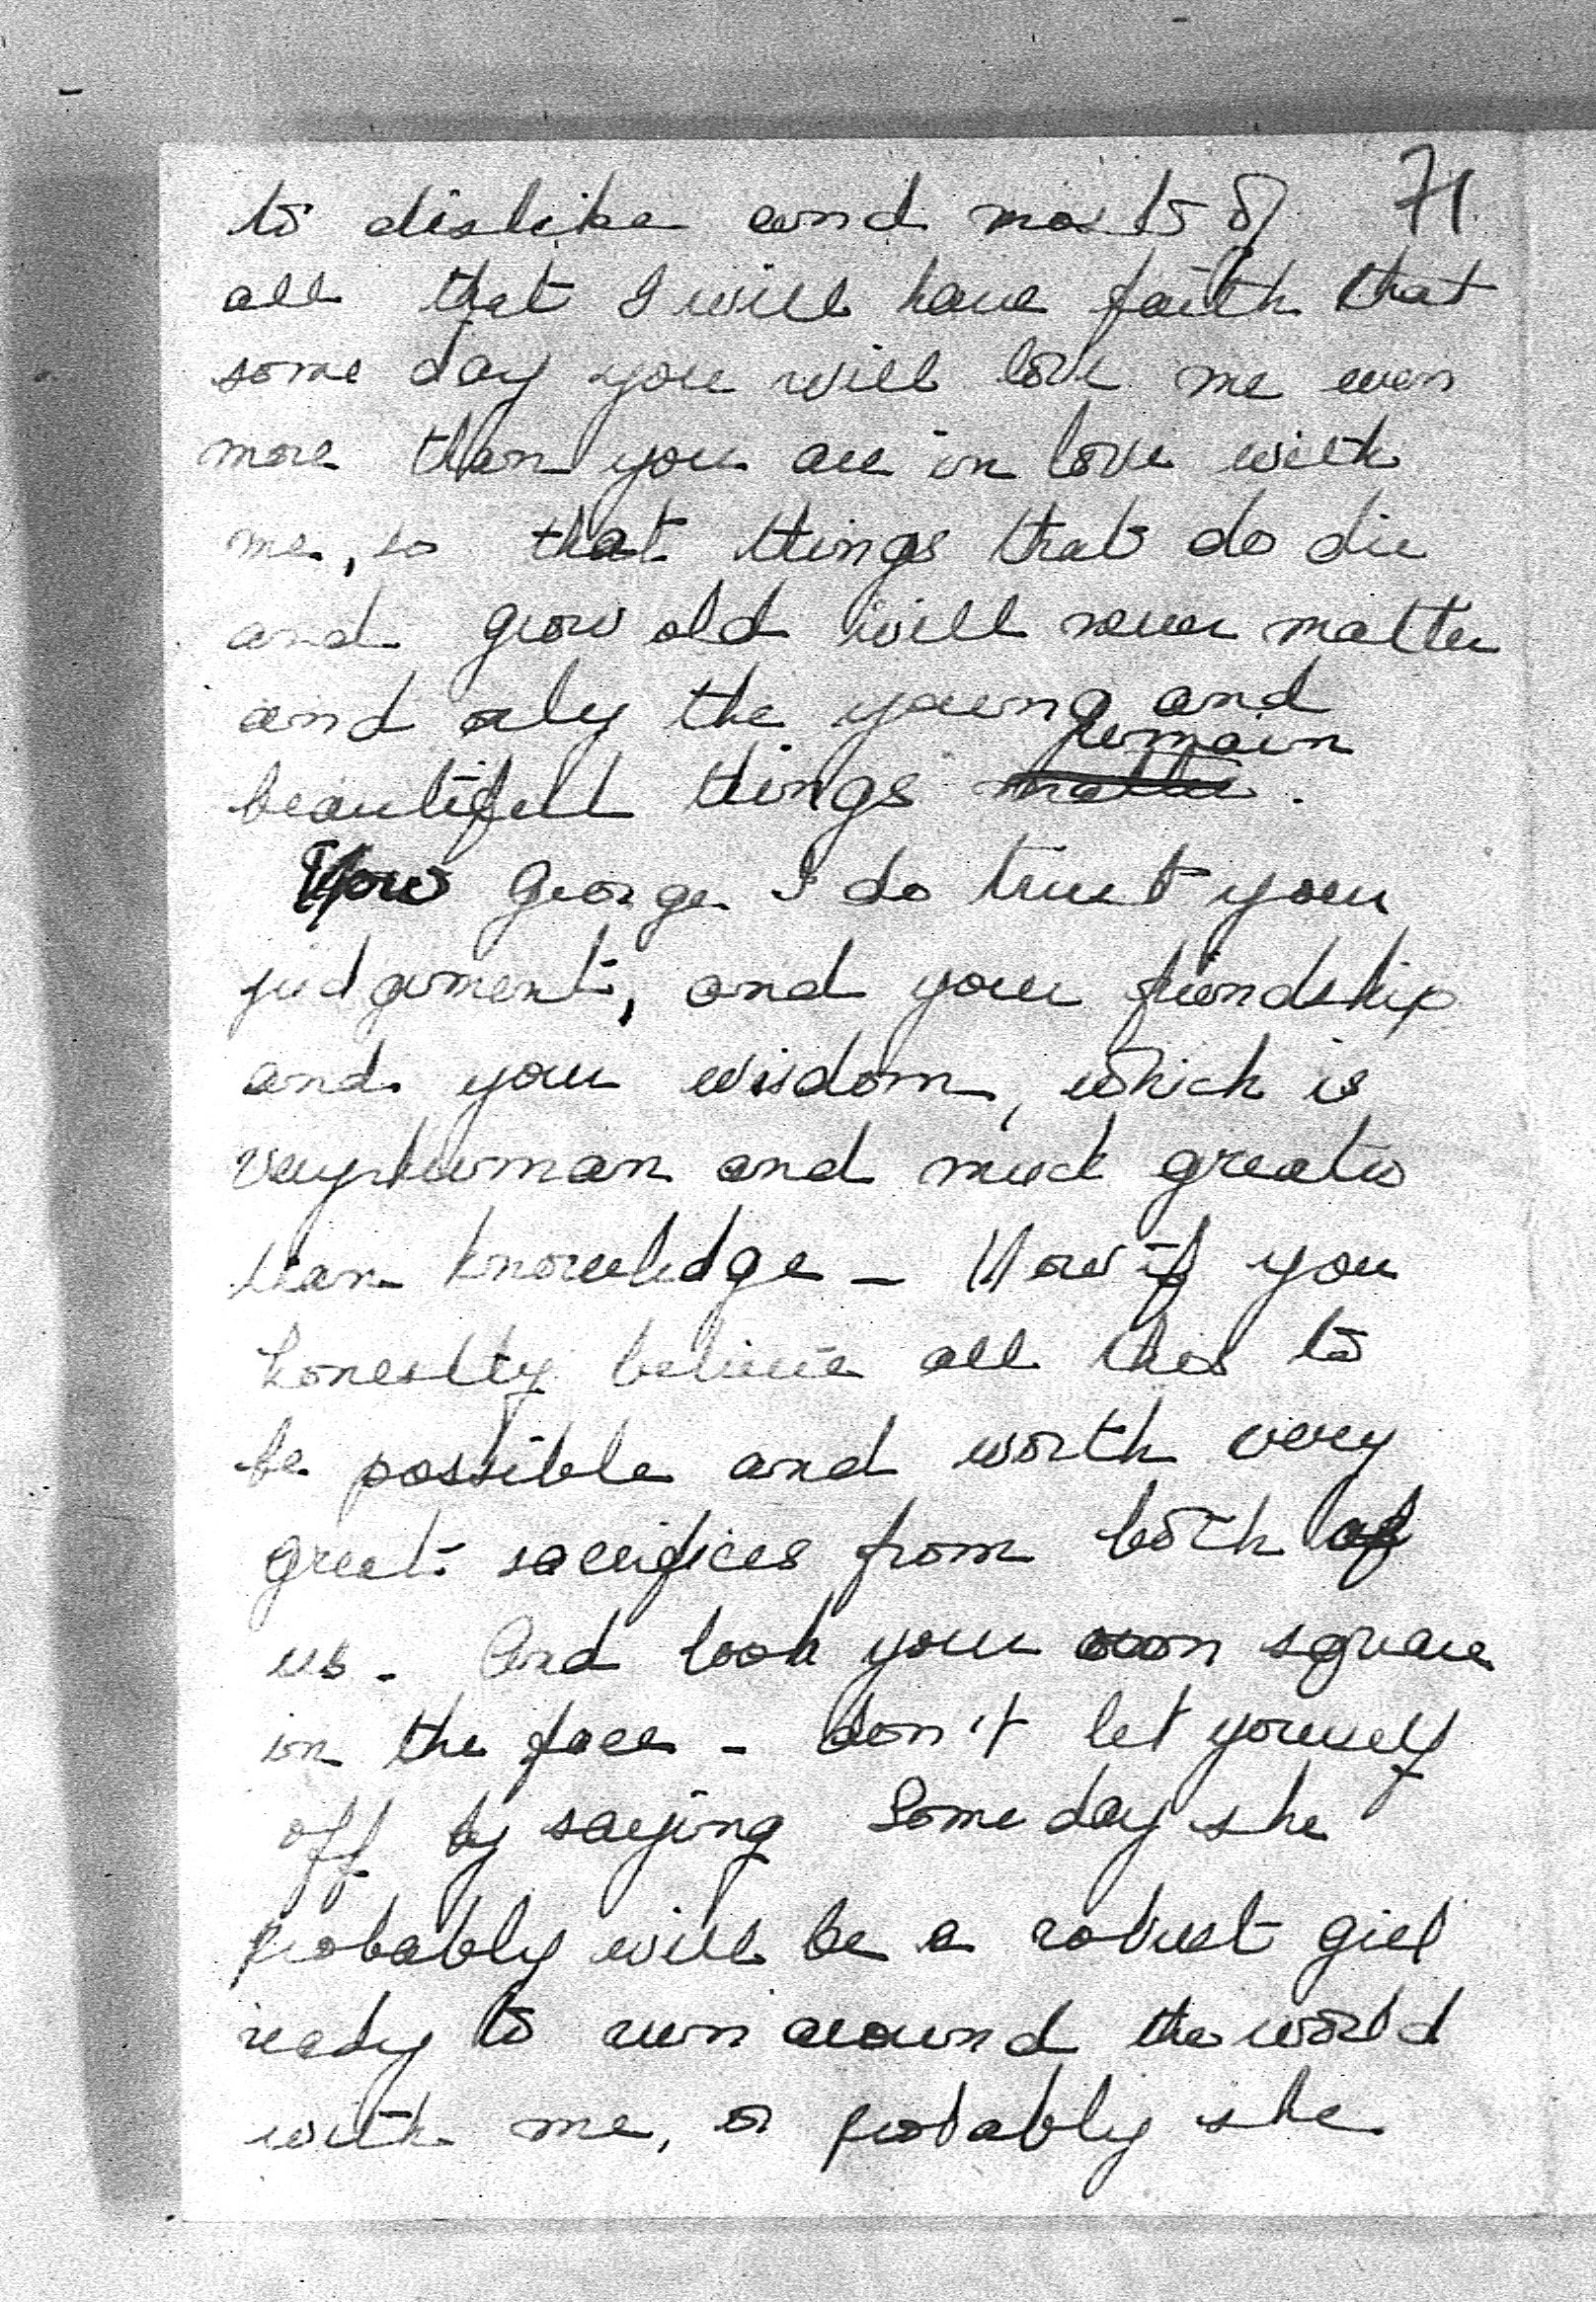 to dislike and most of 71
all that I will have faith that
some day you will love me even
more than you are in love with
me, so that things that do die
and grow old will never matter
and only the young and
remain
beautiful things matter.
Now George I do trust your
judgement, and your friendship
and your wisdom, which is
very human and much greater
than knowledge - Now if you
honestly believe all this to
be possible and worth very
great sacrifices from both of
us - And look your own square
in the face - don't let yourself
off by saying Some day she
probably will be a robust girl
ready to run around the world
with me, or probably she